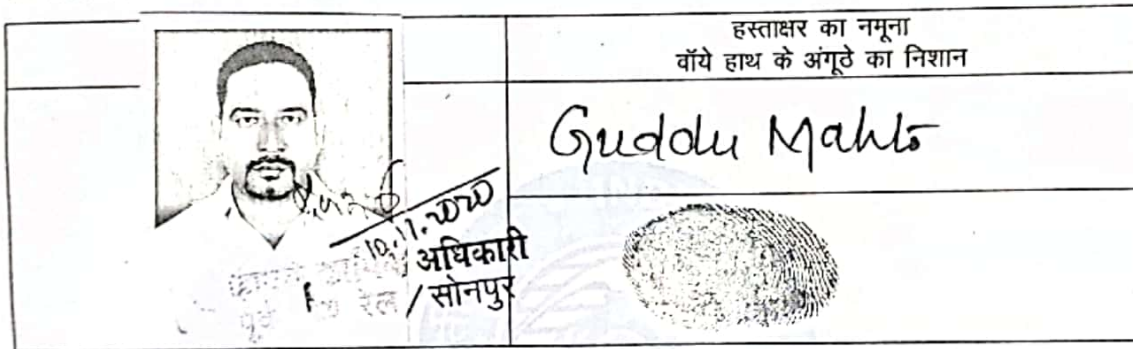 हस्ताक्षर का नमूना
वॉये हाथ के अंगूठे का निशान
Guddu Mahto
10.11.2020
अधिकारी
रेल / सोनपुर